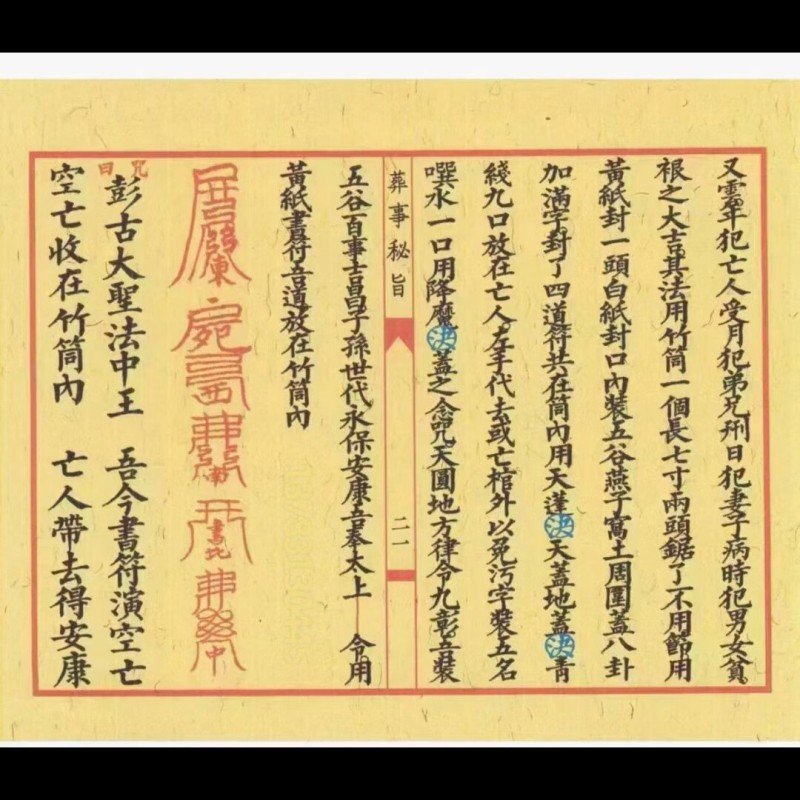 又雲年犯亡人受月犯弟兄刑日犯妻子病時犯男女貧
裉之大吉其法用竹筒一個長七寸兩頭鋸了不用節用
黃紙封一頭白紙封口內裝五谷燕子窩土周圍蓋八卦
加滿字封了四道符共在筒內用天蓬決天蓋地蓋決青
綫九口放在亡人左手代去或亡棺外以免污字裝五名
噀水一口用降魔決蓋之念咒天圓地方律令九彰吾裝
葬事秘旨
二一
五谷百事吉昌子孫世代永保安康吾奉太上 令用
黃紙書符吾道放在竹筒內
東
西
南
中
咒曰
彭古大聖法中王 吾今書符演空亡
空亡收在竹筒內 亡人帶去得安康